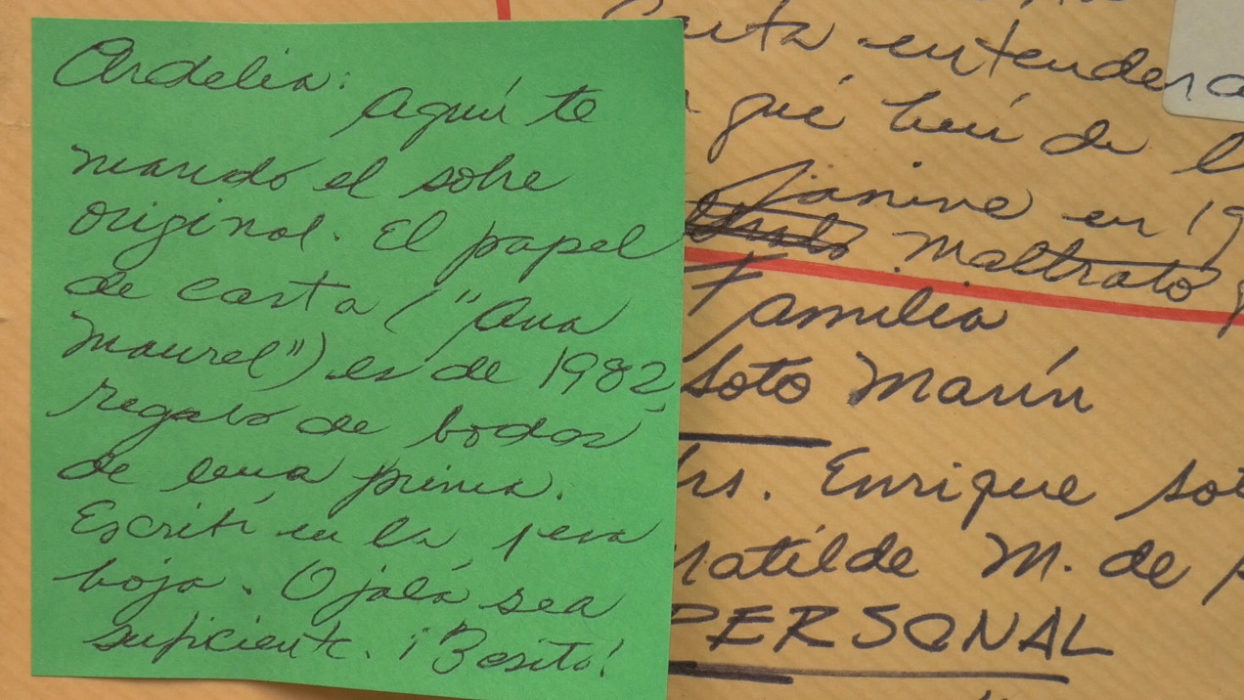 Ardelia:
Aquí te
mando el sobre
original. El papel
de carta ("Ana
Maurel") es de 1982,
regalo de bodas
de una prima.
Escribí en la 1era
hoja. Ojalá sea
suficiente. ¡Besito!
Carta entenderá
qué huí de l
Janine en 19
maltrato
Familia
Soto Marín
Enrique Sot
Matilde M. de
PERSONAL